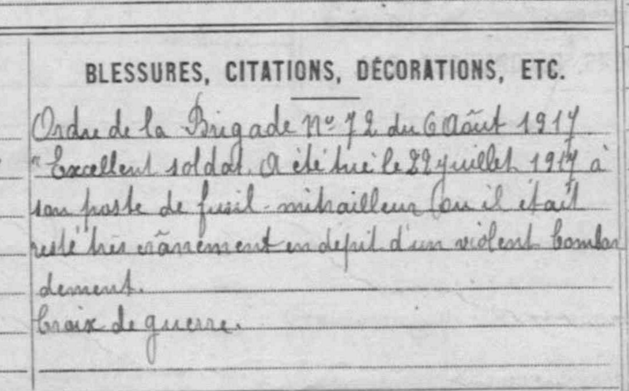 BLESSURES, CITATIONS, DÉCORATIONS, ETC.
Ordre de la Brigade No 72 du 6 Août 1917.
"Excellent soldat. A été tué le 22 juillet 1917 à
son poste de fusil-mitrailleur (ou il était
resté très crânement en dépit d'un violent bombar
dement.
Croix de guerre.